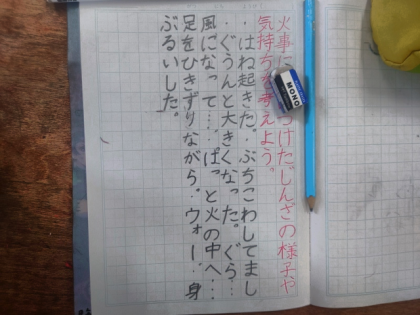 火事に つけたじんざの様子や
気持ちを考えよう。
・はね起きた。・ぶちこわしてまし
・ぐうんと大きくなった。・ぐら…
風になって…・ぱっと火の中へ…
足をひきずりながら・ウォー・身
ぶるいした。
MONO